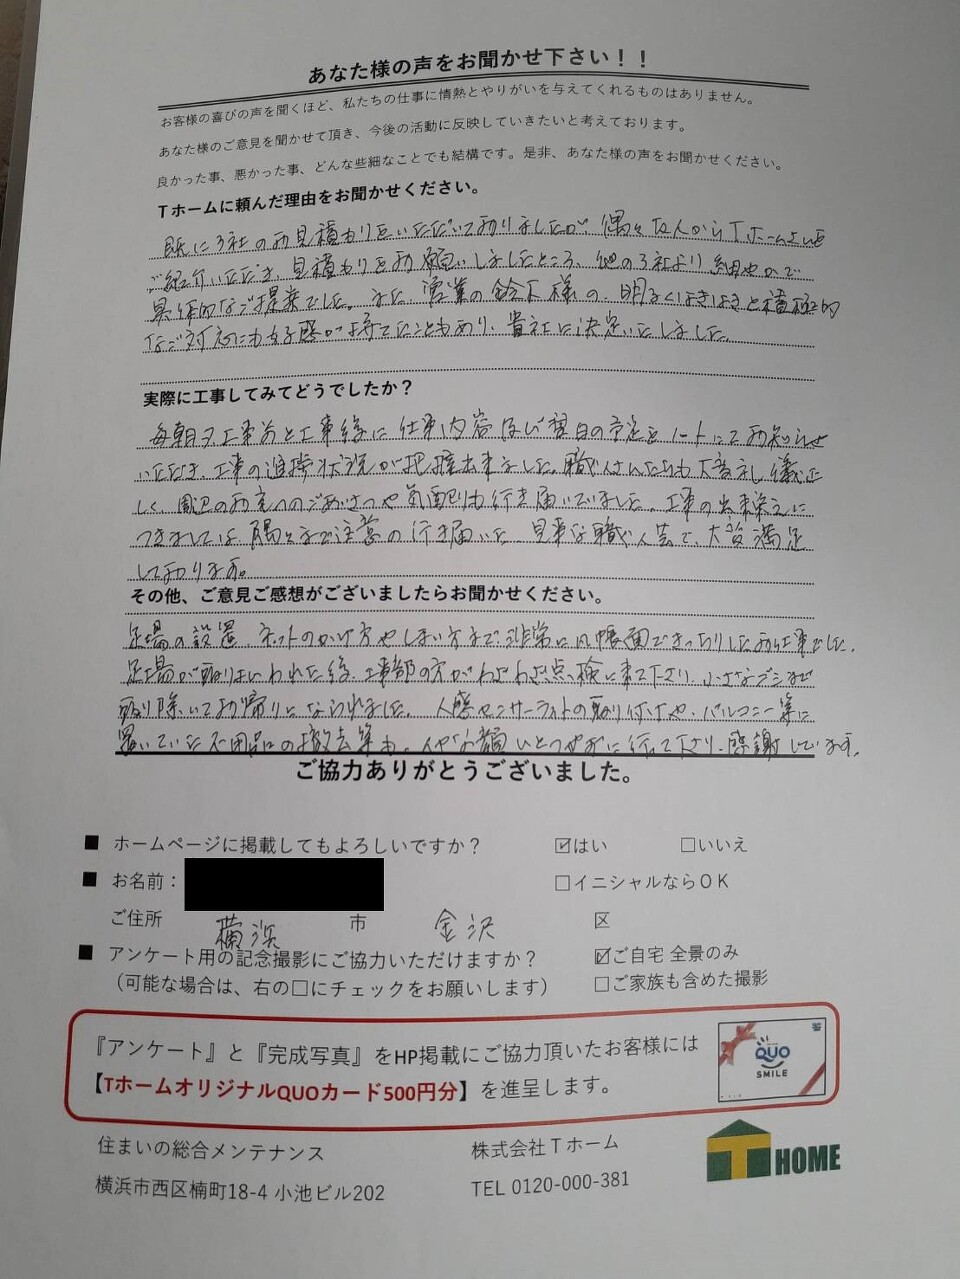 あなた様の声をお聞かせ下さい！！
お客様の喜びの声を聞くほど、私たちの仕事に情熱とやりがいを与えてくれるものはありません。
あなた様のご意見を聞かせて頂き、今後の活動に反映していきたいと考えております。
良かった事、悪かった事、どんな些細なことでも結構です。是非、あなた様の声をお聞かせください。
Ｔホームに頼んだ理由をお聞かせください。
既に3社のお見積もりをいただいておりましたが 偶々友人からTホームさんを
ご紹介いただき、見積もりをお願いしましたところ、他の3社より細やかで
具体的なご提案でした。また 営業の鈴木様の、明るくはきはきと積極的
なご対応にも好感が持てたこともあり、貴社に決定いたしました。
実際に工事してみてどうでしたか？
毎朝夕、工事前と工事後に仕事内容及び翌日の予定をノートにてお知らせ
いただき、工事の進捗状況が把握出来ました。職人さんたちも大変礼儀正
しく、周辺のお宅へのごあいさつや気配りも行き届いていました。工事の出来栄えに
つきましては、隅々まで注意の行き届いた 見事な職人芸で、大変満足
しております。
その他、ご意見ご感想がございましたらお聞かせください。
足場の設置、ネットのかけ方やしまい方まで、非常に几帳面できっちりしたお仕事でした。
足場が取りはらわれた後、工事部の方がわざわざ点検に来て下さり、小さなゴミまで
取り除いてお帰りになられました。人感センサーライトの取り付けや、バルコニー等に
置いていた不用品の撤去等も、イヤな顔ひとつせずに行って下さり、感謝しています。
ご協力ありがとうございました。
■ ホームページに掲載してもよろしいですか？ ☑はい □いいえ
■ お名前： □イニシャルならＯＫ
ご住所 横浜 市 金沢 区
■ アンケート用の記念撮影にご協力いただけますか？ ☑ご自宅 全景のみ
（可能な場合は、右の□にチェックをお願いします） □ご家族も含めた撮影
『アンケート』と『完成写真』をHP掲載にご協力頂いたお客様には
【TホームオリジナルQUOカード500円分】を進呈します。
QUO
SMILE
住まいの総合メンテナンス 株式会社Ｔホーム
横浜市西区楠町18-4 小池ビル202 TEL 0120-000-381
T HOME